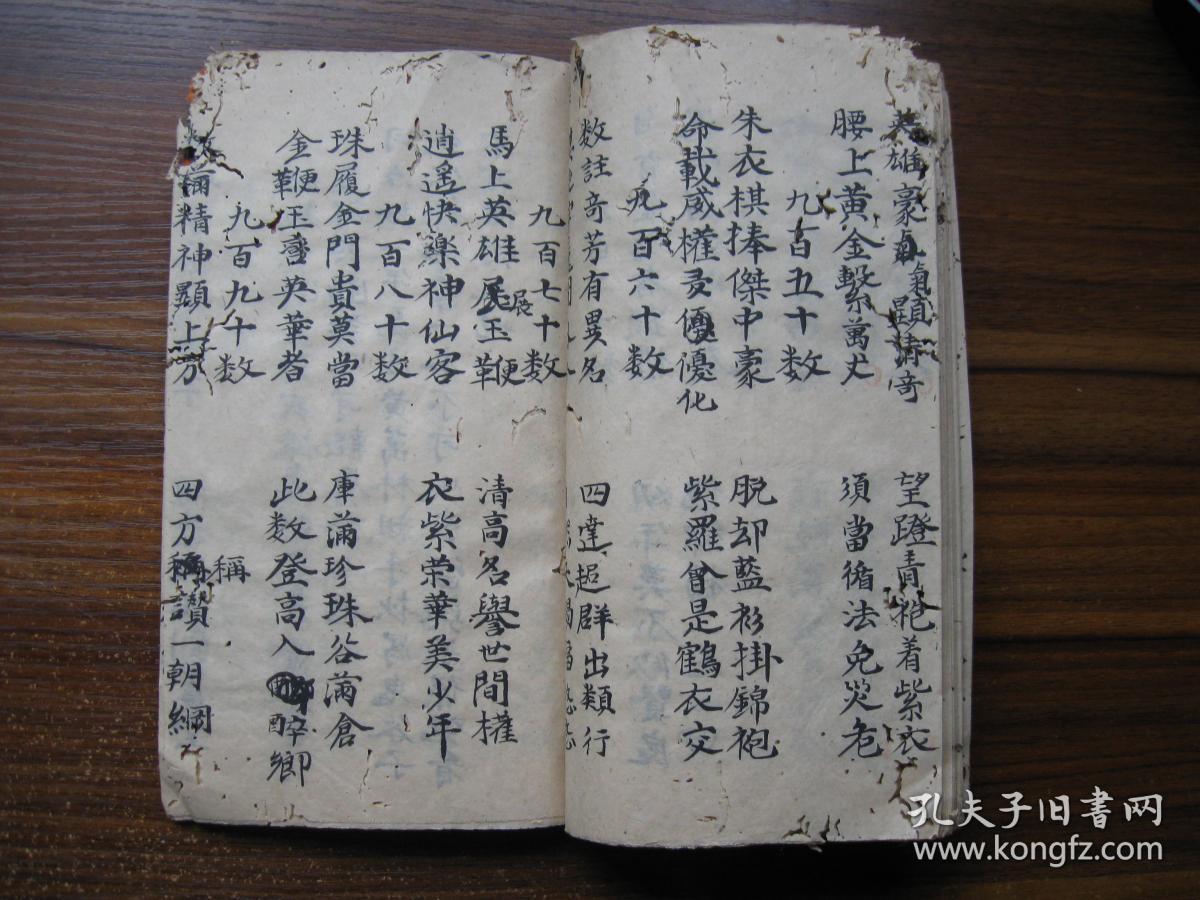 英雄豪氣顯清奇 望蹬青袍着紫衣
腰上黃金繫萬丈 須當循法免災危
九百五十数
朱衣棋捧傑中豪 脫却藍衫掛錦袍
命載威權受優優化 紫羅曾是鶴衣交
九百六十数
数註奇芳有異名 四達超群出類行
九百七十数
馬上英雄展玉鞭 清高名譽世間權
展
逍遥快樂神仙客 衣紫荣華美少年
九百八十数
珠履金門貴莫當 庫滿珍珠谷滿倉
金鞭玉 英華者 此数登高入醉鄉
九百九十数
稱
滿精神顯上方 四方稱讚一朝綱
孔夫子旧书网
www.kongfz.com